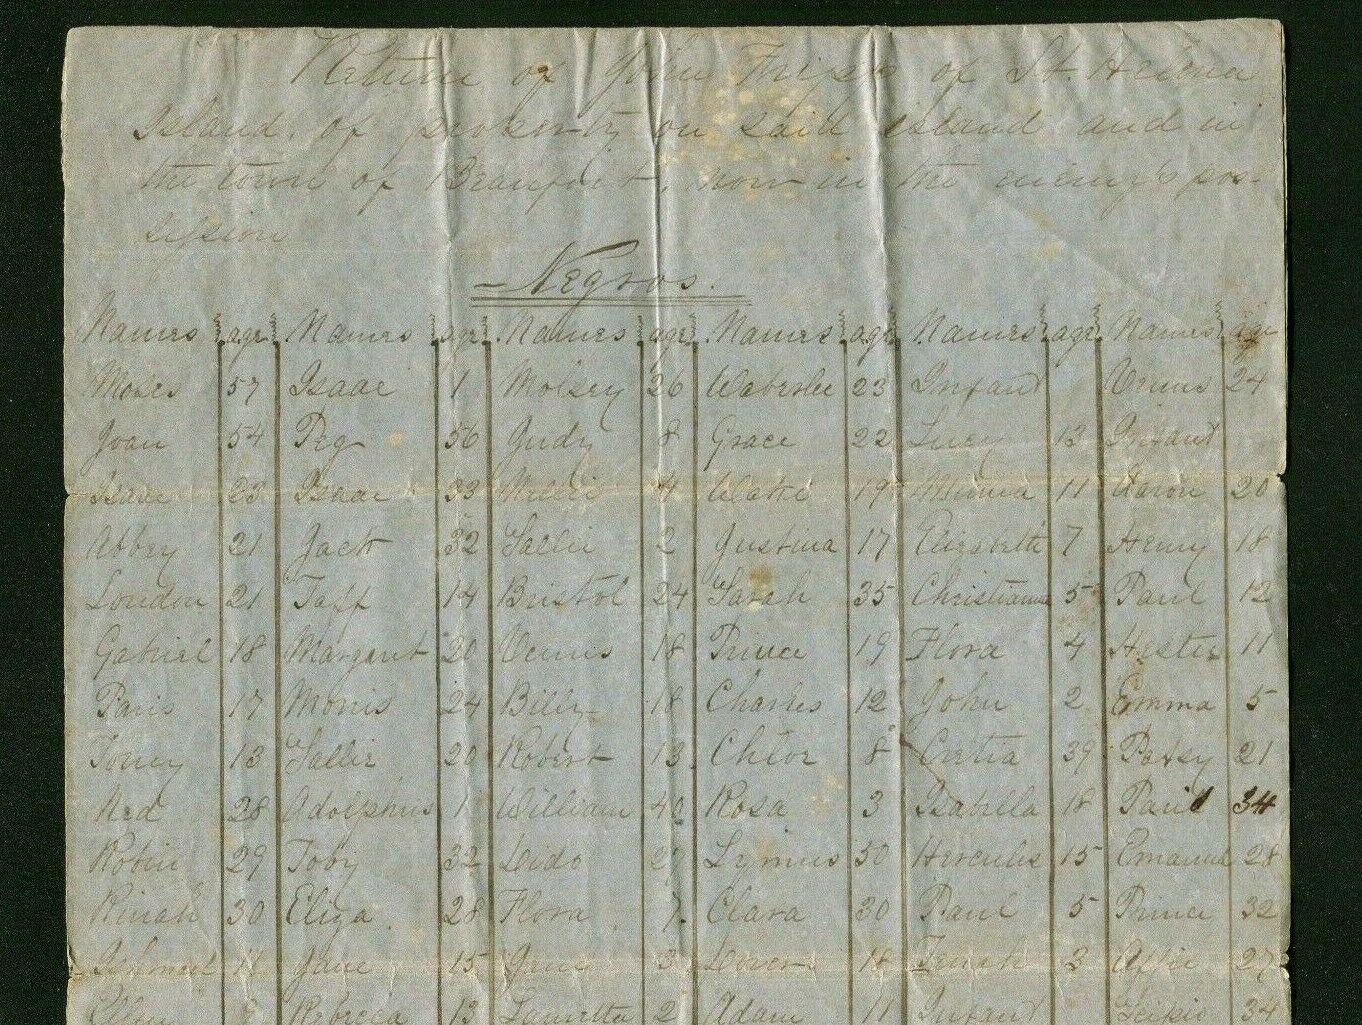 Return of John Fripp of St. Helena
Island, of property on said island and in
the town of Beaufort, now in the enemy's pos-
session
Negros.
Names age Names age Names age Names age Names age Names age
Moses 57 Isaac 1 Molsey 26 23 Infant Venus 24
Joan 54 Peg 56 Judy 8 Grace 22 Lucy 13 Infant
Isaac 23 Isaac 33 Millie 4 19 Minna 11 Aaron 20
Abbey 21 Jack 32 Sallie 2 Justina 17 Elizabeth 7 Henry 18
London 21 Taff 14 Bristol 24 Sarah 35 5 Paul 12
Gabriel 18 Margaret 20 Venus 18 Prince 19 Flora 4 Hester 11
Paris 17 Morris 24 Billy 18 Charles 12 John 2 Emma 5
Toney 13 Sallie 20 Robert 13 Chloe 8 39 Patsy 21
Ned 28 Adolphus 1 William 40 Rosa 3 Isabella 18 Paul 34
Robin 29 Toby 32 Dido 27 Lymus 50 Hercules 15 Emanuel 28
Rinah 30 Eliza 28 Flora 7 Clara 30 Paul 5 Prince 32
11 Jane 15 3 18 3 Affie 27
Rebecca 13 2 Adam 11 Infant Scipio 34